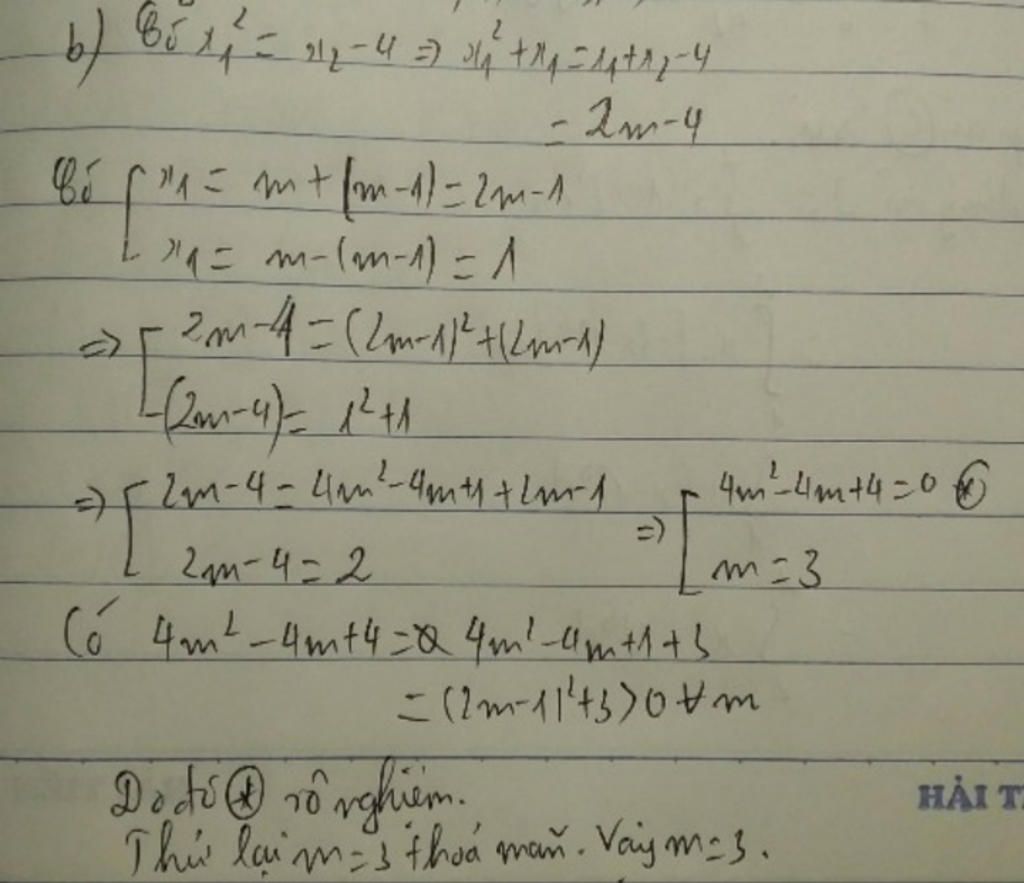 b) Có x₁² = x₂ - 4 ⇒ x₁² + x₁ = x₁ + x₂ - 4
= 2m - 4
Có [ x₁ = m + (m - 1) = 2m - 1
x₁ = m - (m - 1) = 1
⇒ [ 2m - 4 = (2m - 1)² + (2m - 1)
(2m - 4) = 1² + 1
⇒ [ 2m - 4 = 4m² - 4m + 1 + 2m - 1 ⇒ [ 4m² - 4m + 4 = 0 (*)
2m - 4 = 2 m = 3
Có 4m² - 4m + 4 = 4m² - 4m + 1 + 3
= (2m - 1)² + 3 > 0 ∀ m
Do đó (*) vô nghiệm.
Thử lại m = 3 thoả mãn. Vậy m = 3.
HẢI T